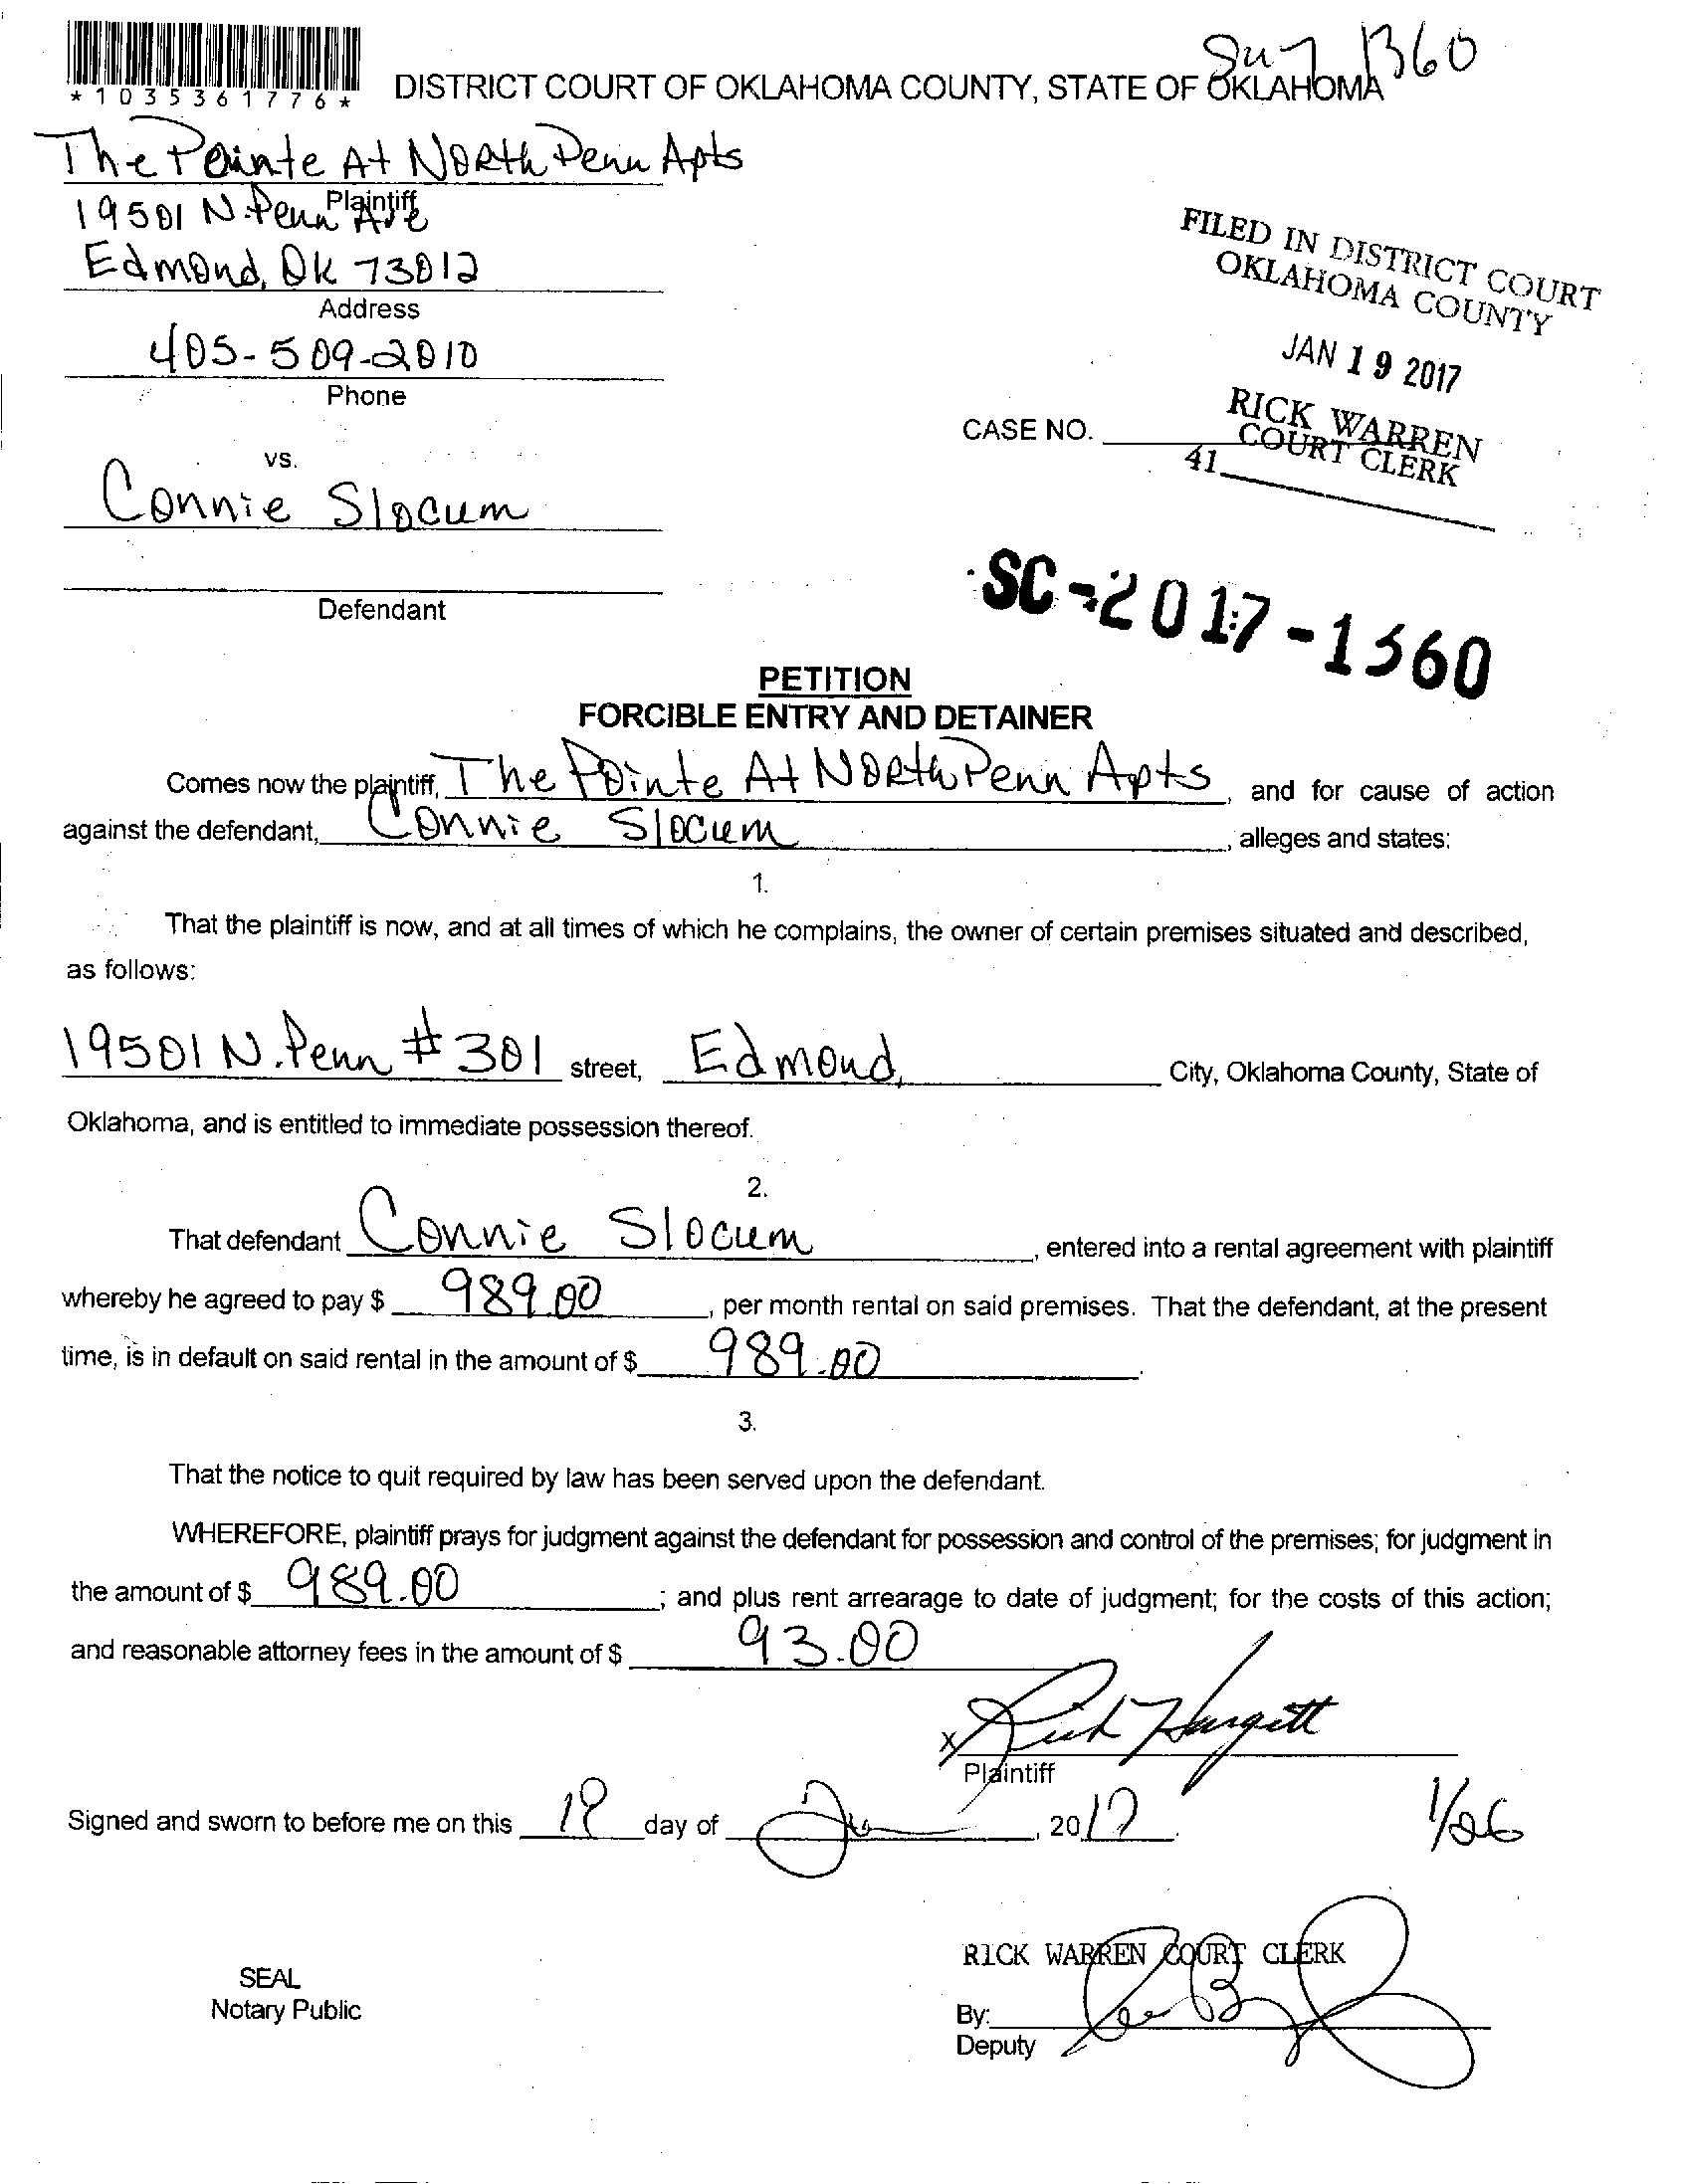 1360
*1035361776*
DISTRICT COURT OF OKLAHOMA COUNTY, STATE OF OKLAHOMA
The Pointe At North Penn Apts
Plaintiff
19501 N. Penn Ave
Edmond, OK 73012
Address
405-509-2010
Phone
FILED IN DISTRICT COURT
OKLAHOMA COUNTY
JAN 19 2017
RICK WARREN
COURT CLERK
41
CASE NO.
vs.
Connie Slocum
Defendant
SC-2017-1360
PETITION
FORCIBLE ENTRY AND DETAINER
Comes now the plaintiff, The Pointe At North Penn Apts, and for cause of action
against the defendant, Connie Slocum, alleges and states:
1.
That the plaintiff is now, and at all times of which he complains, the owner of certain premises situated and described,
as follows:
19501 N. Penn # 301 street, Edmond, City, Oklahoma County, State of
Oklahoma, and is entitled to immediate possession thereof.
2.
That defendant Connie Slocum, entered into a rental agreement with plaintiff
whereby he agreed to pay $ 989.00, per month rental on said premises. That the defendant, at the present
time, is in default on said rental in the amount of $ 989.00.
3.
That the notice to quit required by law has been served upon the defendant.
WHEREFORE, plaintiff prays for judgment against the defendant for possession and control of the premises; for judgment in
the amount of $ 989.00; and plus rent arrearage to date of judgment; for the costs of this action;
and reasonable attorney fees in the amount of $ 93.00
x Rick Hargett
Plaintiff
Signed and sworn to before me on this 19 day of Jan, 2017.
1/26
RICK WARREN COURT CLERK
SEAL
Notary Public
By:
Deputy